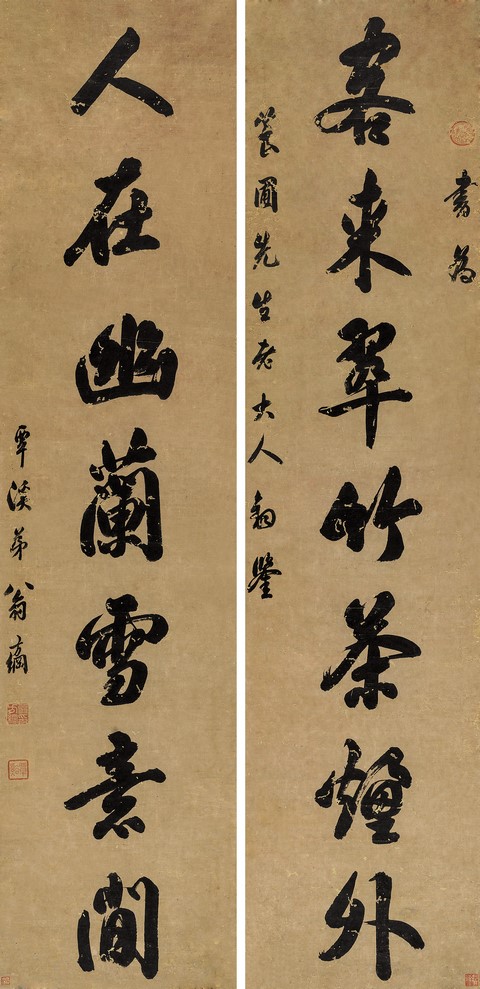 書為
客來翠竹茶煙外
筤圃先生老大人鈞鑒
人在幽蘭雪意間
覃溪弟翁方綱